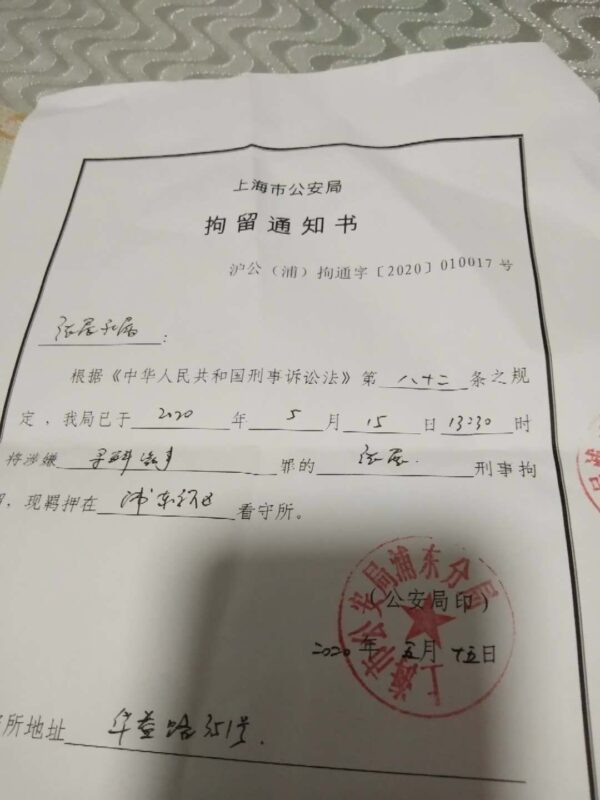 上海市公安局
拘留通知书
沪公（浦）拘通字〔2020〕010017号
张展礼属：
根据《中华人民共和国刑事诉讼法》第 八十二 条之规
定，我局已于 2020 年 5 月 15 日 13:30 时
将涉嫌 寻衅滋事 罪的 张展 刑事拘
，现羁押在 浦东新区 看守所。
上海市公安局浦东分局
（公安局印）
2020年五月十五日
所地址 华益路351号.